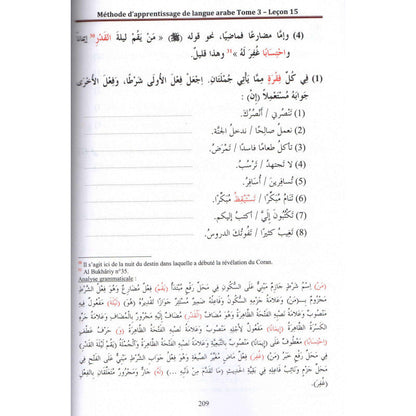 Méthode d'apprentissage de langue arabe Tome 3 – Leçon 15
(4) وإمَّا مضارعًا فماضيًا، نحو قوله (ﷺ) « مَنْ يَقُمْ ليلةَ القَدْرِ ³⁰ إيمانًا
واحتِسابًا غُفِرَ لَهُ »³¹ وهذا قليلٌ.
(1) فِي كُلِّ فِقرَةٍ مِمَّا يَأتِي جُمْلَتَانِ. اجْعَلْ فِعْلَ الأُولَى شَرْطًا، وَفِعْلَ الأُخْرَى
جَوَابَهُ مُسْتَعْمِلاً (إِنْ):
(1) تَنْصُرني / أَنْصُرُكَ.
(2) نعملُ صالِحًا / ندخلُ الجنَّة.
(3) تأكلُ طعامًا فاسدًا / تَمْرَضُ.
(4) لا تجتهدُ / تَرْسُبُ.
(5) تُسافِرينَ / أُسَافِرُ.
(6) تَنَامُ مُبَكِّرًا / تَسْتَيْقِظُ مُبَكِّرًا.
(7) تَكْتُبُونَ إليَّ / أكتبُ إليكم.
(8) تَغيبُ كثيرًا / تَفُوتُكَ الدروسُ.
³⁰ Il s'agit ici de la nuit du destin dans laquelle a débuté la révélation du Coran.
³¹ Al Bukhâriy n°35.
Analyse grammaticale :
(مَنْ) اِسْمُ شَرْطٍ جَازِمٌ مَبْنِيٌّ عَلَى السُّكُونِ فِي مَحَلِّ رَفْعٍ مُبْتَدَأٌ (يَقُمْ) فِعْلٌ مُضَارِعٌ وَهُوَ فِعْلُ الشَّرْطِ
مَجْزُومٌ بِـ(مَنْ) وَعَلَامَةُ جَزْمِهِ السُّكُونُ وَفَاعِلُهُ ضَمِيرٌ مُسْتَتِرٌ جَوَازًا تَقْدِيرُهُ (هُوَ) (لَيْلَةَ) مَفْعُولٌ فِيهِ
مَنْصُوبٌ وَعَلَامَةُ نَصْبِهِ الفَتْحَةُ الظَّاهِرَةُ وَهُوَ مُضَافٌ (القَدْرِ) مُضَافٌ إِلَيْهِ مَجْرُورٌ وَعَلَامَةُ جَرِّهِ
الكَسْرَةُ الظَّاهِرَةُ (إِيمَانًا) مَفْعُولٌ لِأَجْلِهِ مَنْصُوبٌ وَعَلَامَةُ نَصْبِهِ الفَتْحَةُ الظَّاهِرَةُ (وَ) حَرْفُ عَطْفٍ
(احْتِسَابًا) مَعْطُوفٌ عَلَى (إِيمَانًا) مَنْصُوبٌ وَعَلَامَةُ نَصْبِهِ الفَتْحَةُ الظَّاهِرَةُ وَالجُمْلَةُ (يَقُمْ لَيْلَةَ القَدْرِ)
فِي مَحَلِّ رَفْعٍ خَبَرُ (مَنْ) (غُفِرَ) فِعْلٌ مَاضٍ مُغَيَّرُ الصِّيغَةِ وَهُوَ فِعْلُ جَوَابِ الشَّرْطِ مَبْنِيٌّ عَلَى الفَتْحِ فِي
مَحَلِّ جَزْمٍ وَنَائِبُ فَاعِلِهِ فِي بَقِيَّةِ الحَدِيثِ (مَا تَقَدَّمَ مِنْ ذَنْبِهِ ...) (لَهُ) جَارٌّ وَمَجْرُورٌ مُتَعَلِّقَانِ بِالفِعْلِ
(غُفِرَ).
209